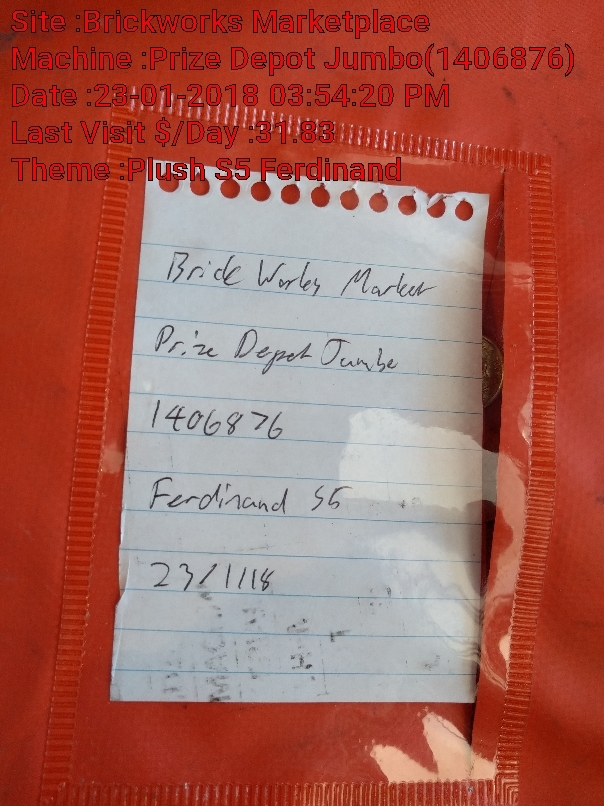 Site :Brickworks Marketplace
Machine :Prize Depot Jumbo(1406876)
Date :23-01-2018 03:54:20 PM
Last Visit $/Day :31.83
Theme :Plush S5 Ferdinand
Brick Works Market
Prize Depot Jumbo
1406876
Ferdinand S5
23/1/18